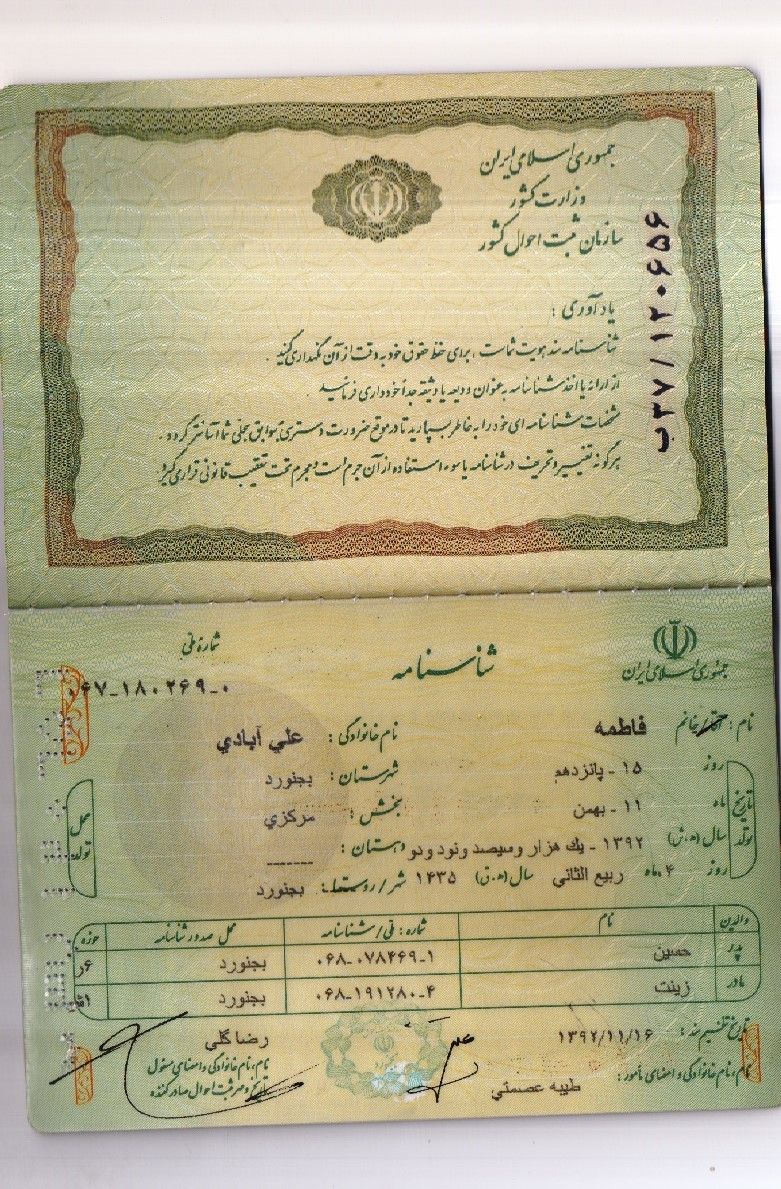 جمهوری اسلامی ایران
وزارت کشور
سازمان ثبت احوال کشور
ب۳۷/۱۲۰۶۵۶
یادآوری :
شناسنامه سند هویت شماست ، برای حفظ حقوق خود به دقت از آن نگهداری کنید .
از ارائه یا اخذ شناسنامه به عنوان ودیعه یا وثیقه جداً خودداری فرمائید .
مشخصات شناسنامه ای خود را به خاطر بسپارید تا در موقع ضرورت دسترسی بسوابق سجلی شما آسانتر گردد .
هرگونه تغییر و تحریف در شناسنامه یا سوء استفاده از آن جرم است و مجرم تحت تعقیب قانونی قرار می گیرد
جمهوری اسلامی ایران
شناسنامه
شماره ملی
۰۶۷-۱۸۰۲۶۹-۰
نام : آقا/خانم فاطمه نام خانوادگی : علي آبادي
تاریخ تولد
روز ۱۵ - پانزدهم شهرستان : بجنورد
ماه ۱۱ - بهمن بخش : مرکزي
سال (ه.ش) ۱۳۹۲ - یك هزار وسیصد ونود ودو دهستان : -------
روز ۴ ماه ربیع الثاني سال (ه.ق) ۱۴۳۵ شهر/روستا : بجنورد
محل تولد
والدین نام شماره : ملی/شناسنامه محل صدور شناسنامه حوزه
پدر حسین ۰۶۸-۰۷۸۴۶۹-۱ بجنورد ۶ر
مادر زینت ۰۶۸-۱۹۱۲۸۰-۴ بجنورد
تاریخ تنظیم سند : ۱۳۹۲/۱۱/۱۶ رضا گلي
نام ، نام خانوادگی و امضای مأمور : طیبه عصمتي
نام ، نام خانوادگی و امضای مسئول
و مهر ثبت احوال صادرکننده